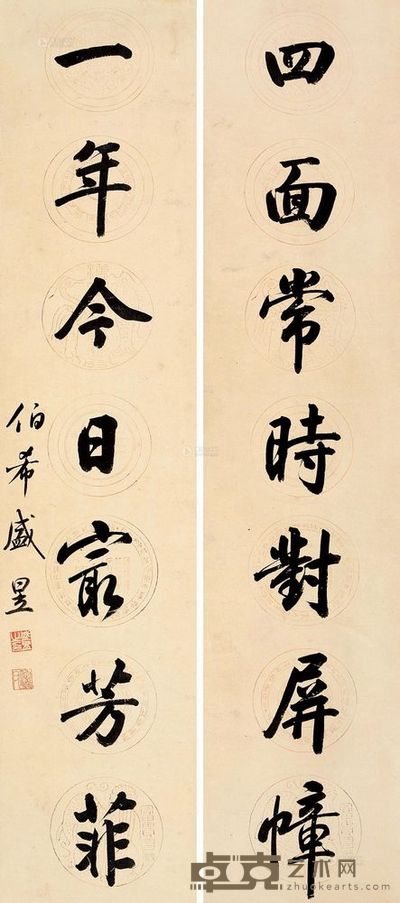 四面常時對屏幛
一年今日宸芳菲
伯希盛昱
卓克艺术网
zhuokearts.com